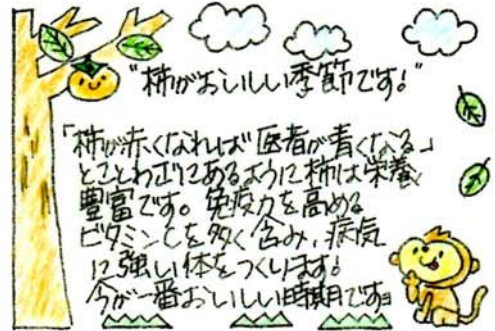 "柿がおいしい季節です!"
「柿が赤くなれば医者が青くなる」
とことわざにあるように柿は栄養
豊富です。免疫力を高める
ビタミンCを多く含み、病気
に強い体をつくります!
今が一番おいしい時期です